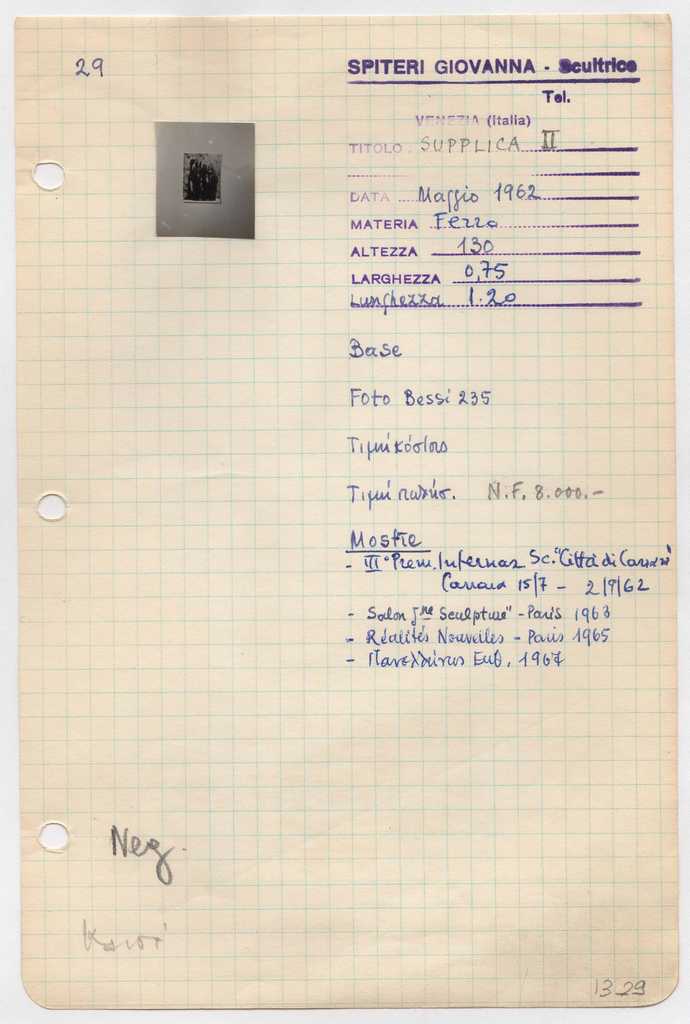 29
SPITERI GIOVANNA - Scultrice
Tel.
VENEZIA (Italia)
TITOLO SUPPLICA II
DATA Maggio 1962
MATERIA Ferro
ALTEZZA 130
LARGHEZZA 0,75
Lunghezza 1.20
Base
Foto Bessi 235
Τιμή κόστους
Τιμή πωλήσ. N.F. 8.000.-
Mostre
- III° Prem. Internaz Sc. "Città di Carrara"
Carrara 15/7 - 2/9/62
- Salon Jne Sculpture" - Paris 1963
- Réalités Nouvelles - Paris 1965
- Πανελλήνιος Εκθ. 1967
Neg.
13-29